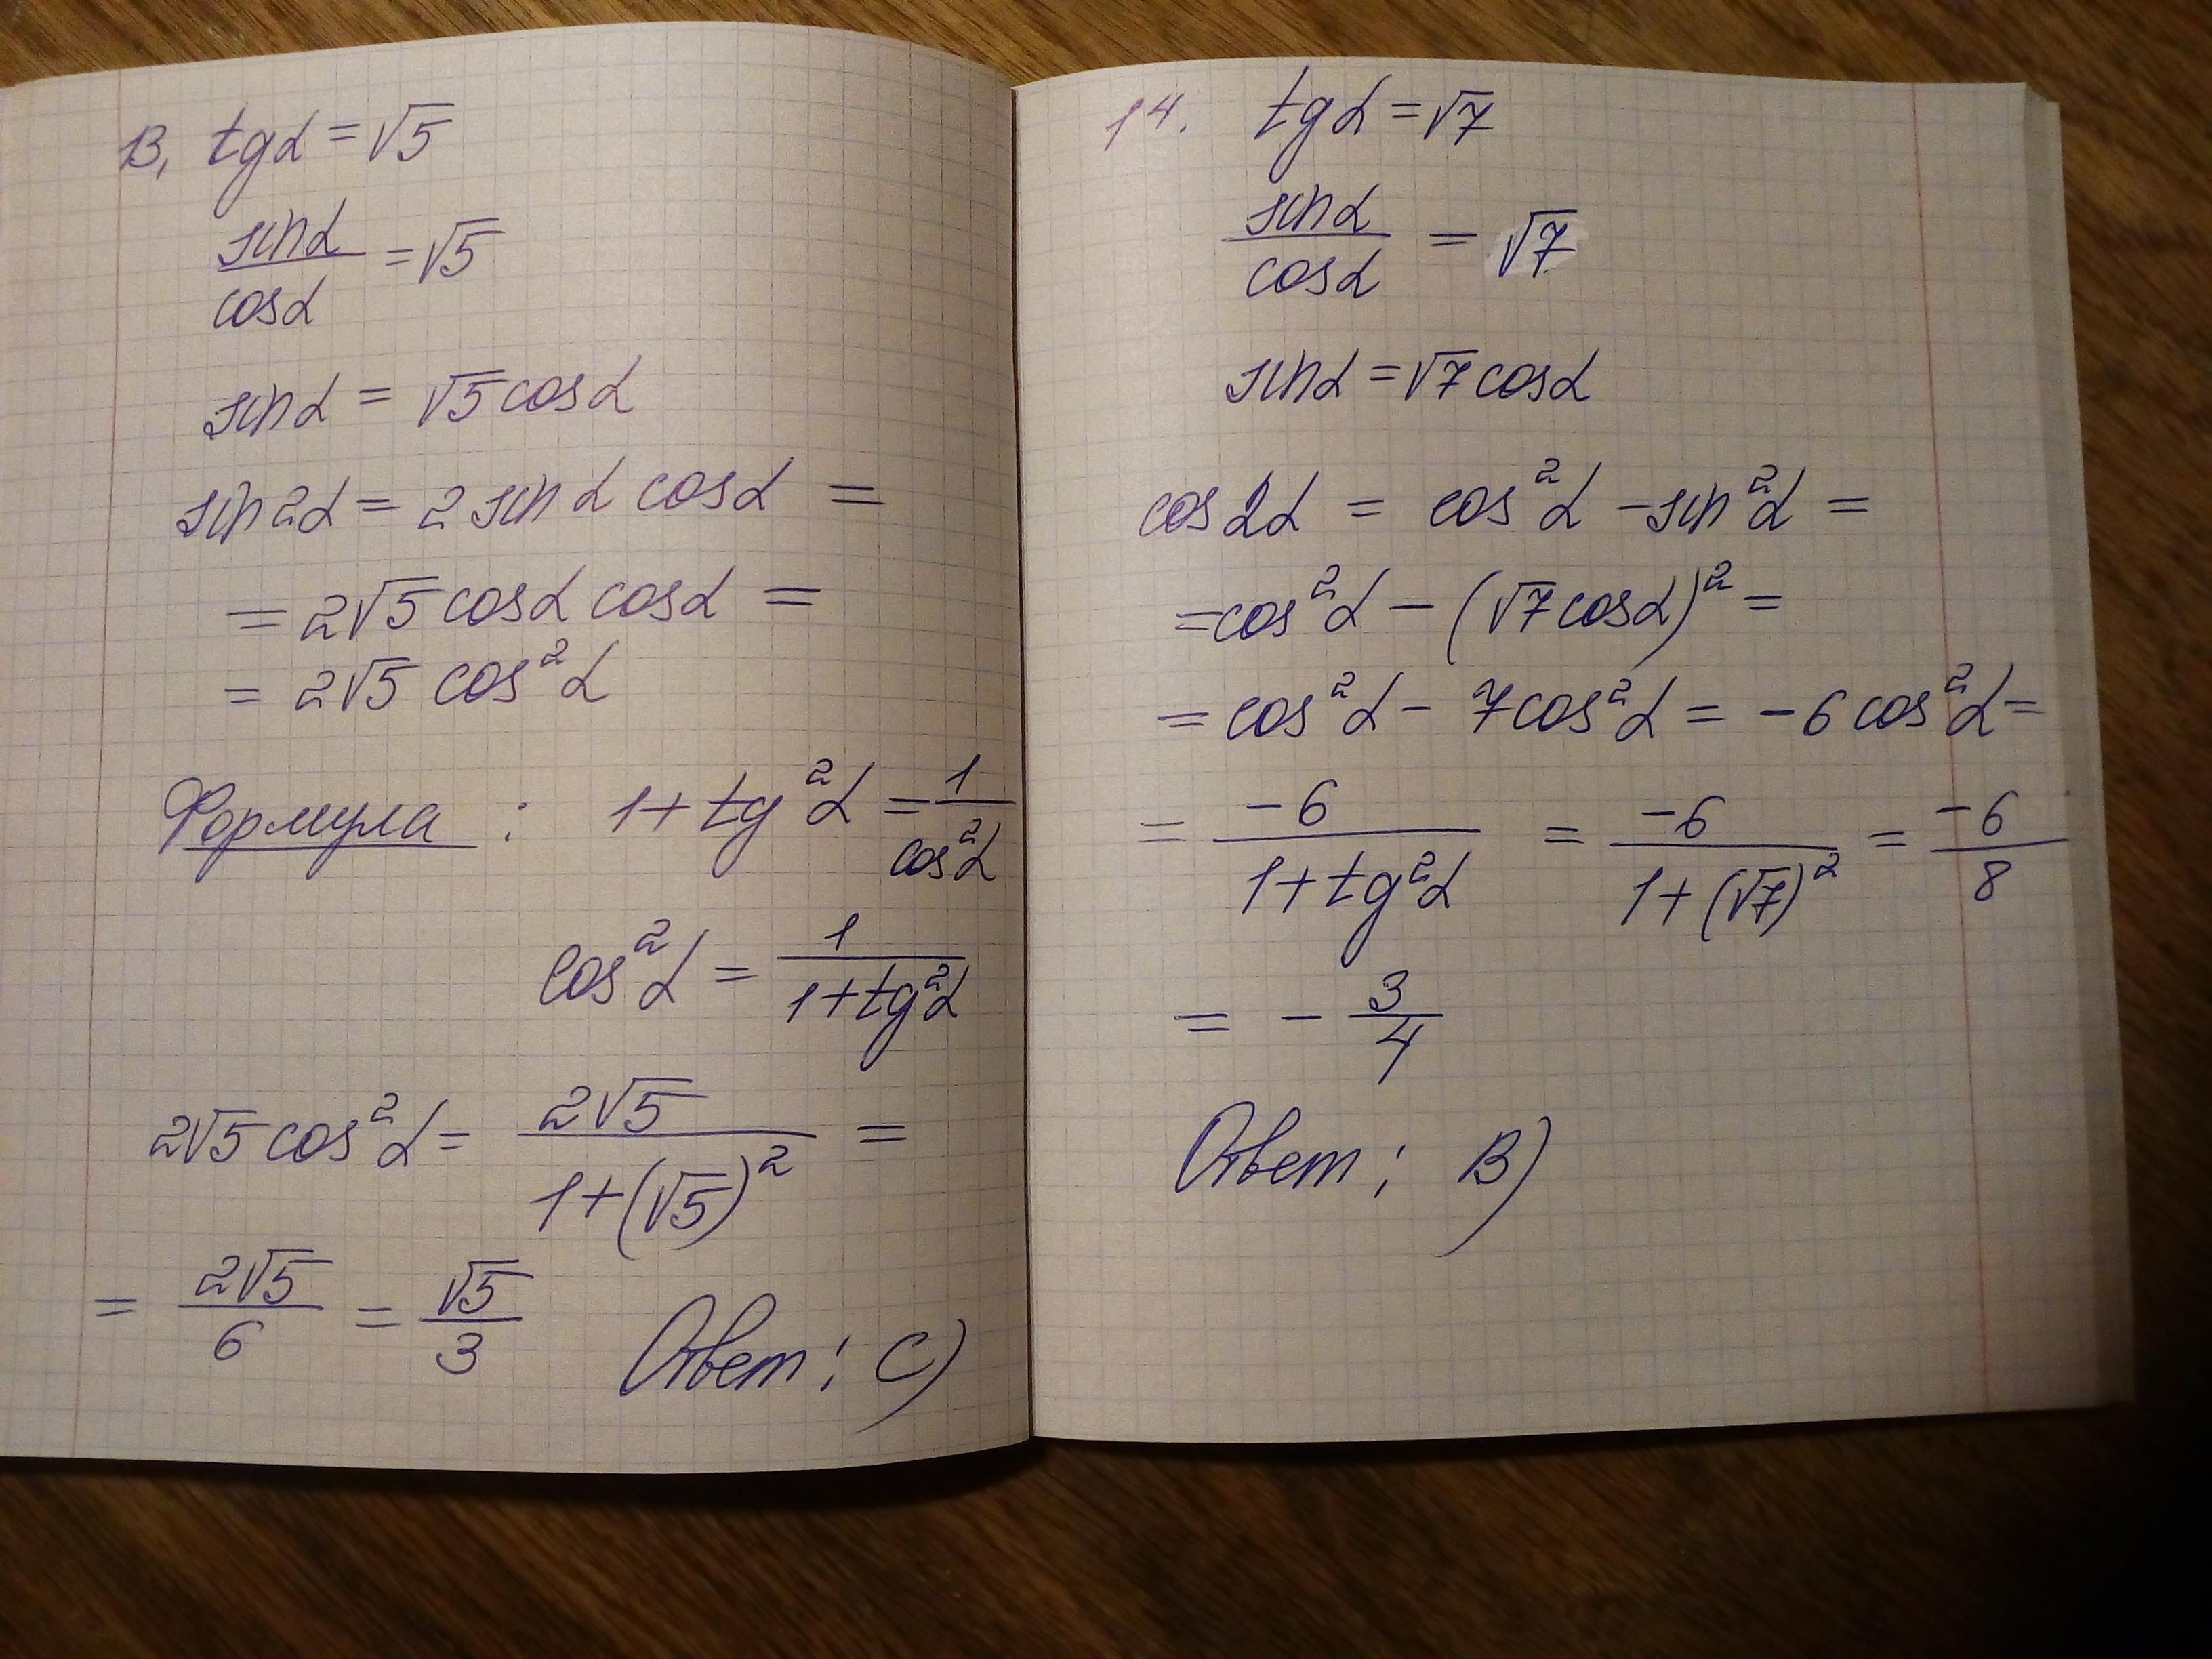 13. tgα = √5
sinα / cosα = √5
sinα = √5 cosα
sin2α = 2 sinα cosα =
= 2√5 cosα cosα =
= 2√5 cos²α
Формула : 1 + tg²α = 1 / cos²α
cos²α = 1 / (1 + tg²α)
2√5 cos²α = 2√5 / (1 + (√5)²) =
= 2√5 / 6 = √5 / 3 Ответ: C)
14. tgα = √7
sinα / cosα = √7
sinα = √7 cosα
cos2α = cos²α − sin²α =
= cos²α − (√7 cosα)² =
= cos²α − 7cos²α = −6 cos²α =
= −6 / (1 + tg²α) = −6 / (1 + (√7)²) = −6 / 8
= − 3 / 4
Ответ: B)